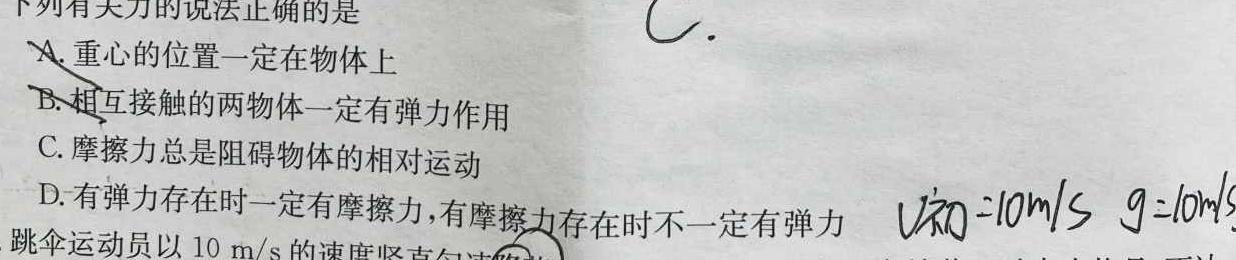 下列有关力的说法正确的是
C.
A. 重心的位置一定在物体上
B. 相互接触的两物体一定有弹力作用
C. 摩擦力总是阻碍物体的相对运动
D. 有弹力存在时一定有摩擦力,有摩擦力存在时不一定有弹力
V初=10m/s g=10m/s
跳伞运动员以 10 m/s 的速度竖直匀速